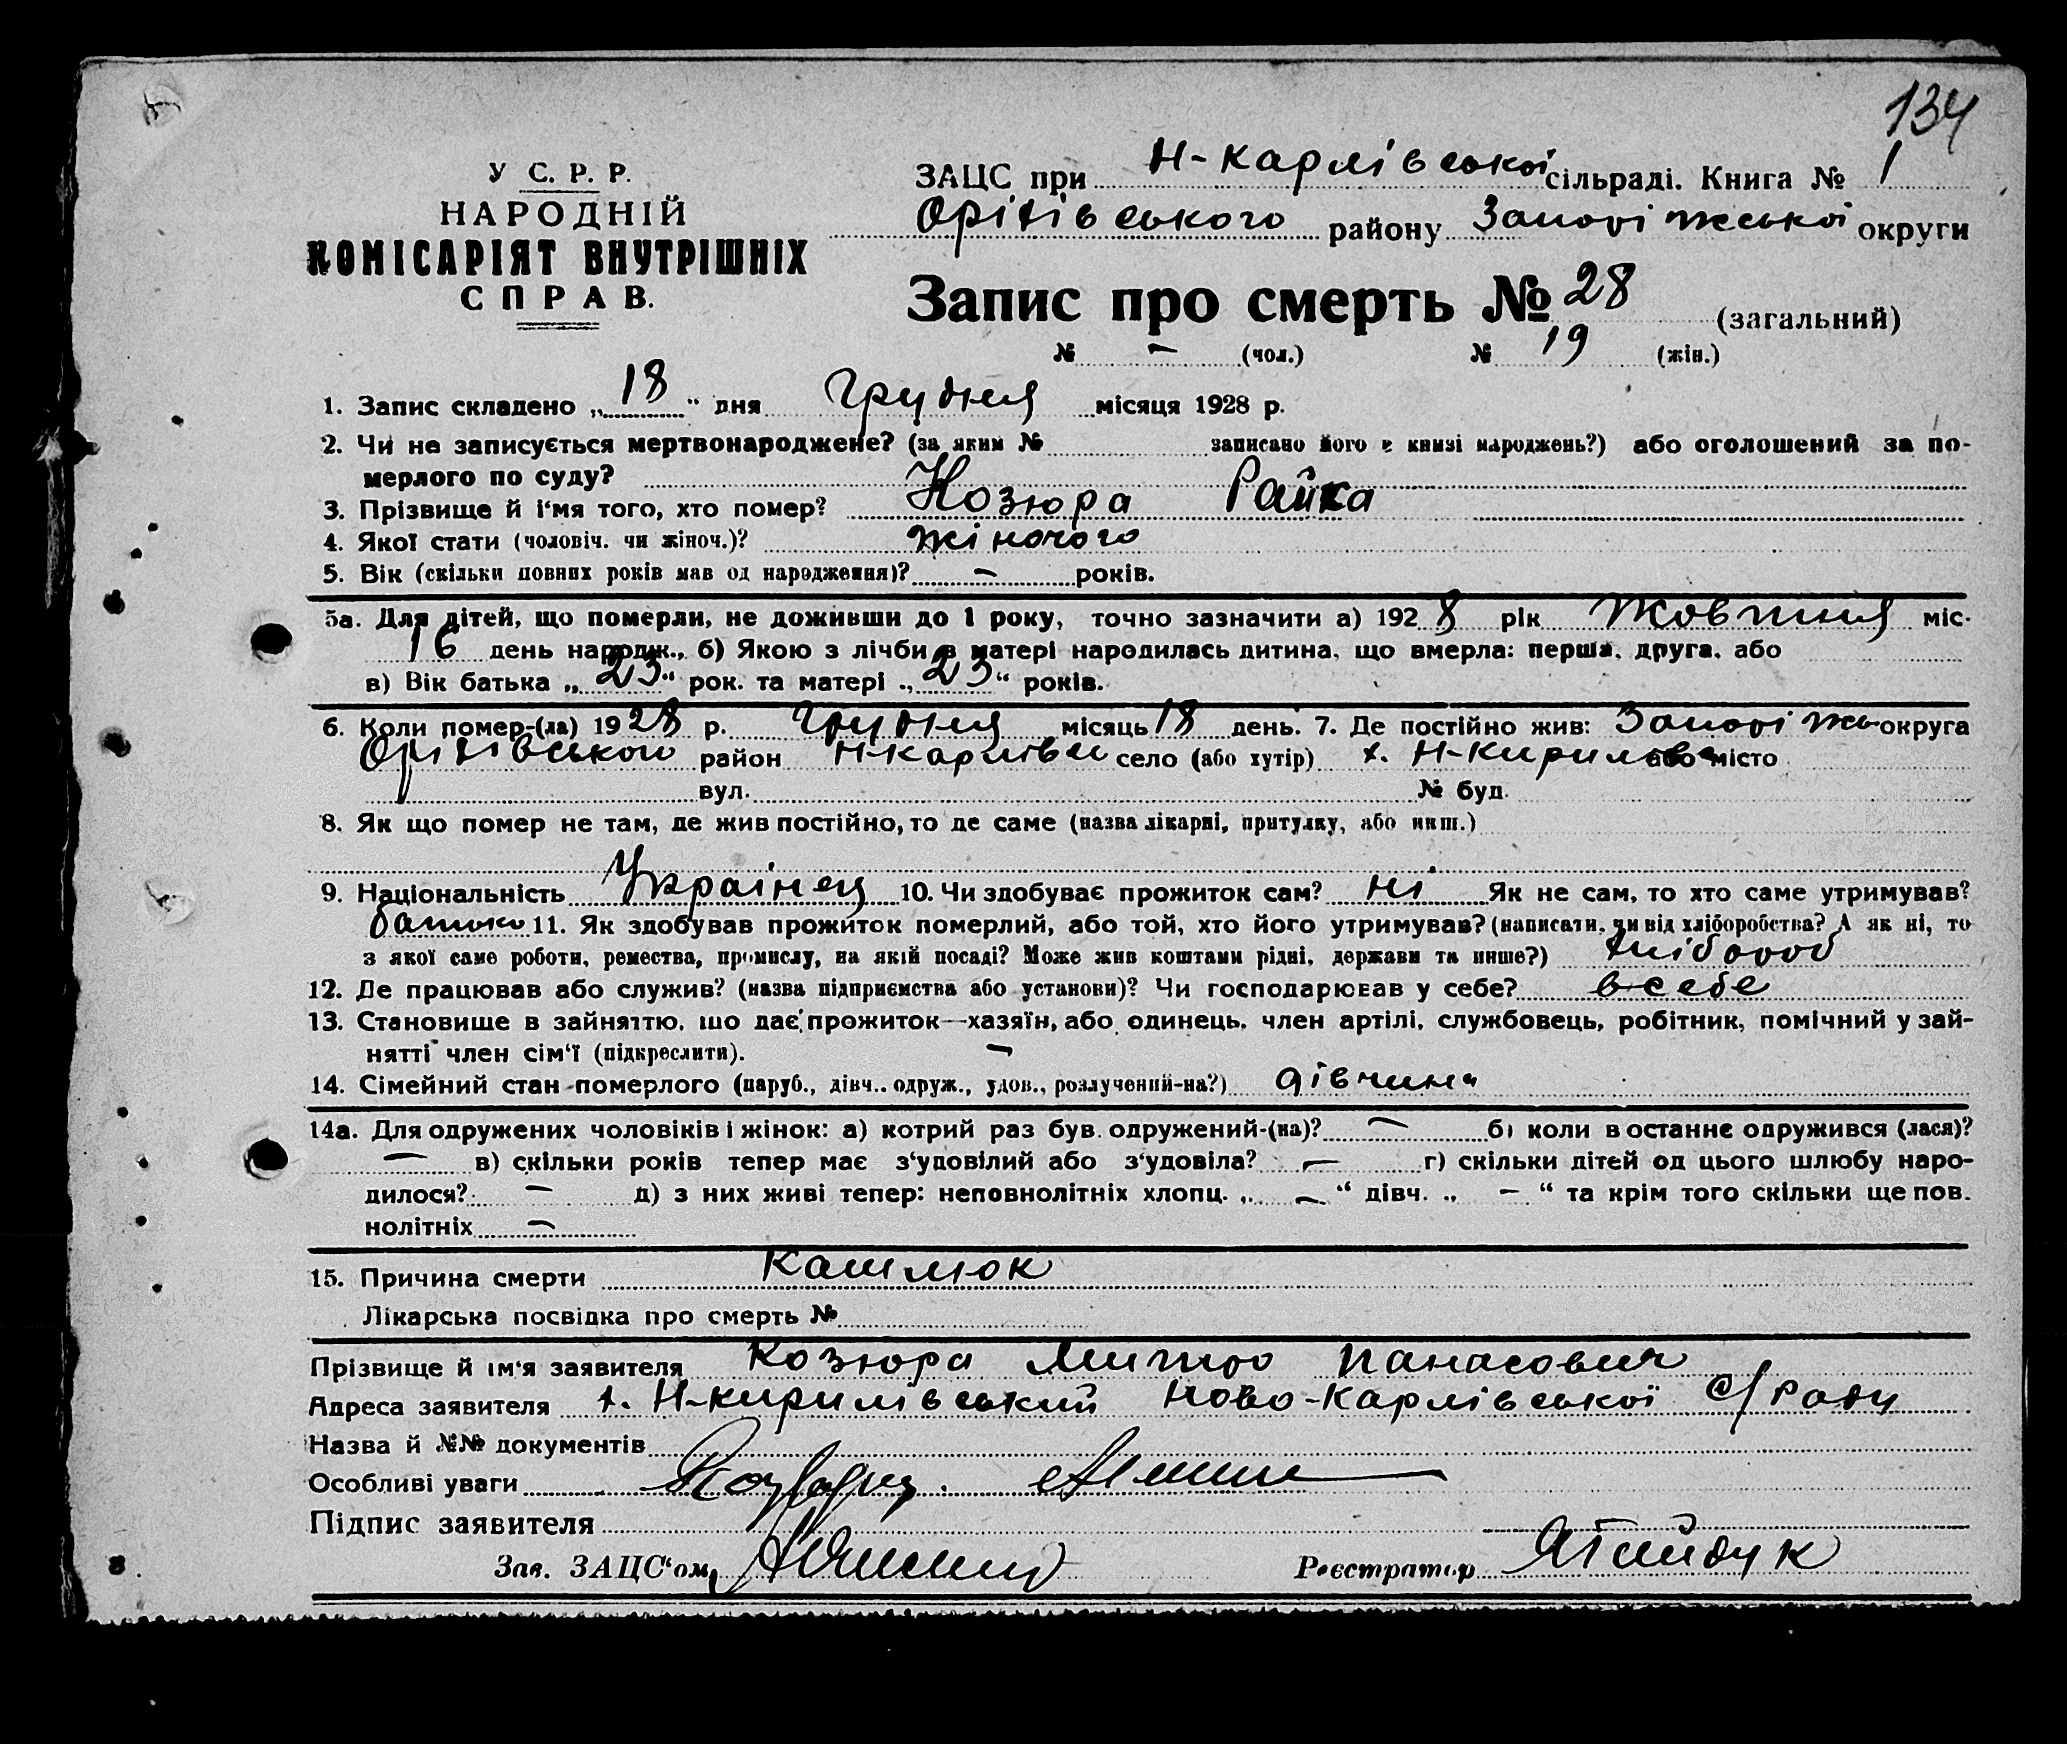 134
У С. Р. Р.
НАРОДНІЙ
КОМІСАРІЯТ ВНУТРІШНІХ
СПРАВ.
ЗАЦС при Н-Карлівської сільраді. Книга № 1
Оріхівського району Запоріжської округи
Запис про смерть № 28 (загальний)
№ — (чол.) № 19 (жін.)
1. Запис складено „18" дня Грудня місяця 1928 р.
2. Чи не записується мертвонароджене? (за яким № записано його в книзі народжень?) або оголошений за по-
мерлого по суду?
3. Прізвище й і'мя того, хто помер? Козюра Райка
4. Якої стати (чоловіч. чи жіноч.)? жіночого
5. Вік (скільки повних років мав од народження)? — років.
5а. Для дітей, що померли, не доживши до 1 року, точно зазначити а) 1928 рік Жовтня міс.
16 день народж., б) Якою з лічби в матері народилась дитина, що вмерла: перша, друга, або
в) Вік батька „23" рок. та матері „23" років.
6. Коли помер-(ла) 1928 р. Грудня місяць 18 день. 7. Де постійно жив: Запоріжь округа
Оріхівського район Н-Карлівки село (або хутір) х. Н-Кирилівка або місто
вул. № буд.
8. Як що помер не там, де жив постійно, то де саме (назва лікарні, притулку, або инш.)
9. Національність Українец 10. Чи здобуває прожиток сам? ні Як не сам, то хто саме утримував?
батько 11. Як здобував прожиток померлий, або той, хто його утримував? (написати, чи від хліборобства? А як ні, то
з якої саме роботи, ремества, промислу, на якій посаді? Може жив коштами рідні, держави та инше?) хлібороб
12. Де працював або служив? (назва підприємства або установи)? Чи господарював у себе? в себе
13. Становище в зайняттю, що дає прожиток—хазяїн, або одинець, член артілі, службовець, робітник, помічний у зай-
нятті член сім'ї (підкреслити). —
14. Сімейний стан померлого (паруб., дівч.. одруж., удов., розлучений-на?) дівчина
14а. Для одружених чоловіків і жінок: а) котрий раз був одружений-(на)? — б) коли востаннє одружився (лася)?
— в) скільки років тепер має з'удовілий або з'удовіла? — г) скільки дітей од цього шлюбу наро-
дилося? — д) з них живі тепер: неповнолітніх хлопц. „ — " дівч. „ — " та крім того скільки ще пов.
нолітніх —
15. Причина смерти Кашлюк
Лікарська посвідка про смерть №
Прізвище й ім'я заявителя Козюра Митро Панасович
Адреса заявителя х. Н-Кирилівський Ново-Карлівської С/ради
Назва й №№ документів
Особливі уваги
Підпис заявителя
Зав. ЗАЦС'ом Реєстратор
8